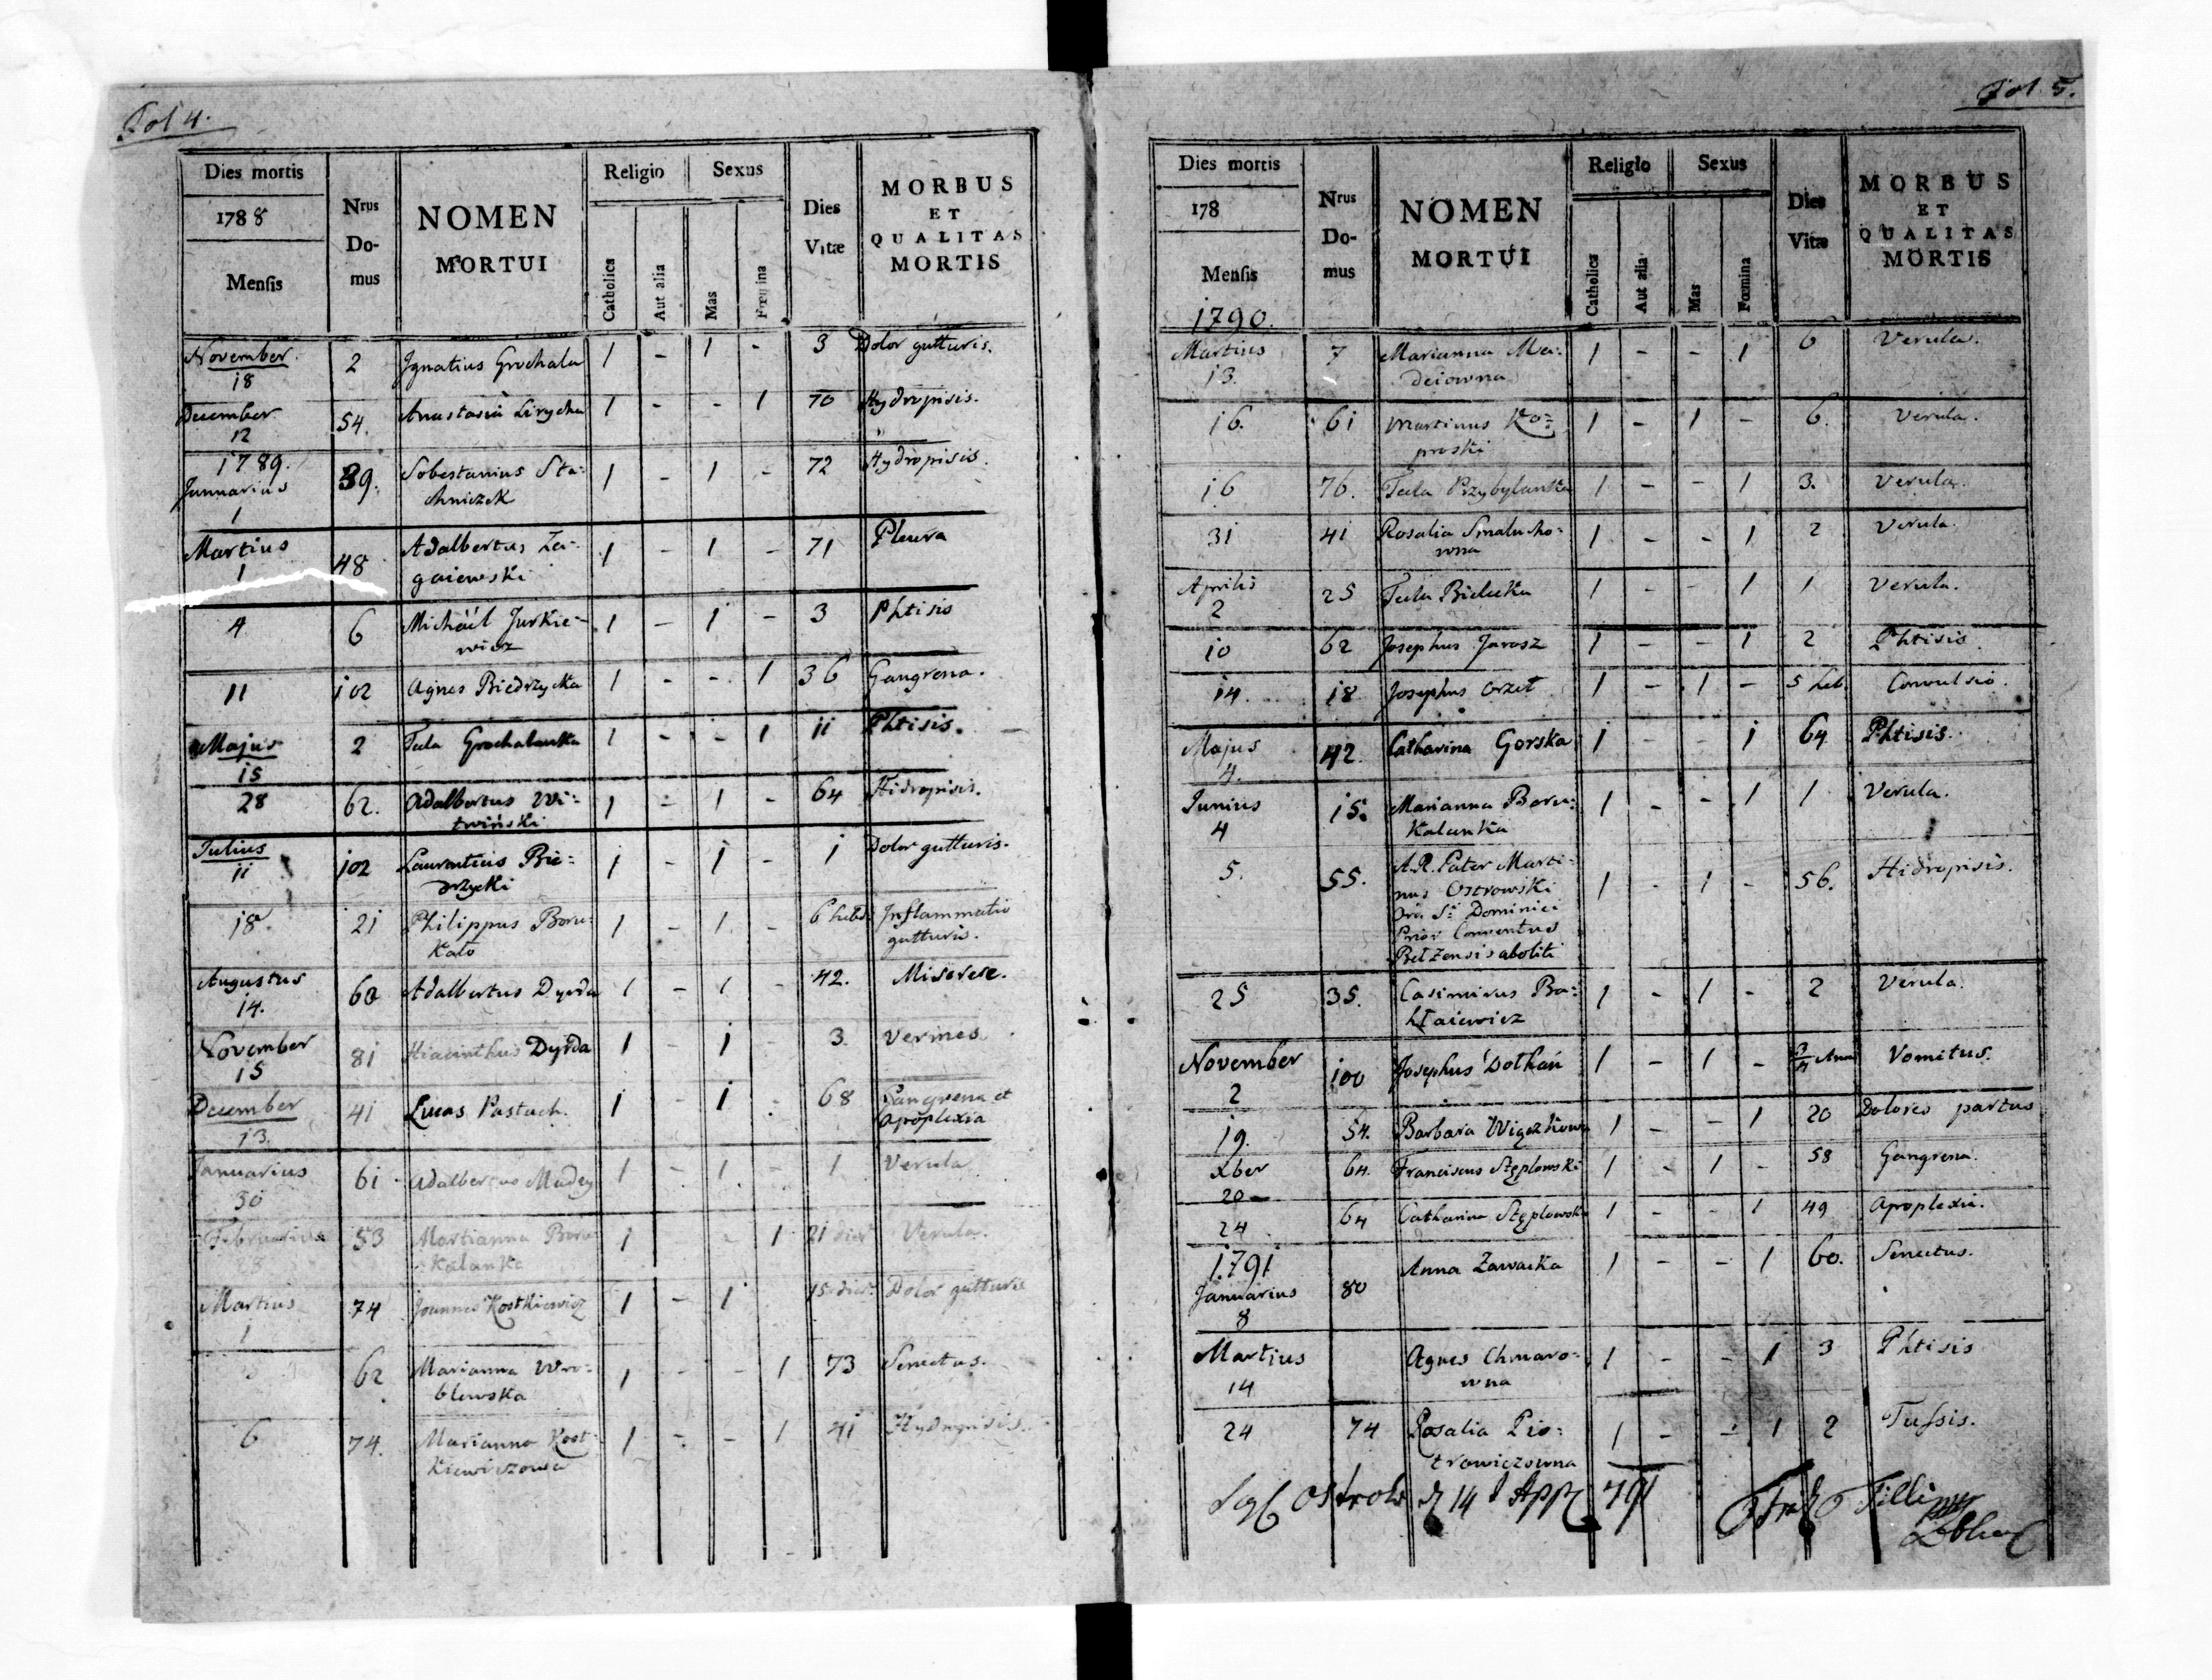 Fol 4.
Dies mortis
1788
Mensis
Nrus
Do-
mus
NOMEN
MORTUI
Religio
Sexus
Catholica
Aut alia
Mas
Fœmina
Dies
Vitæ
MORBUS
ET
QUALITAS
MORTIS
November 18 2 Ignatius Grochala 1 - 1 - 3 Dolor gutturis.
December 12 54. Anastasia 1 - - 1 70 Hydropisis.
1789.
Januarius 1 39. Sobestanius Sta-
chniczek 1 - 1 - 72 Hydropisis.
Martius 1 48 Adalbertus Za-
gaiewski 1 - 1 - 71 Pleura
4 6 Michäel Jurkie-
wicz 1 - 1 - 3 Phtisis
11 102 Agnes Biedrzycka 1 - - 1 36 Gangrena.
Majus 15 2 Tecla Grochalanka 1 - - 1 11 Phtisis.
28 62. Adalbertus Wi-
twiński 1 - 1 - 64 Hidropisis.
Julius 11 102 Laurentius Bie-
drzycki 1 - 1 - 1 Dolor gutturis.
18. 21 Philippus Boru-
Kało 1 - 1 - 6 hebd. Inflammatio
gutturis.
Augustus 14. 60 Adalbertus Dyrda 1 - 1 - 42. Miserere.
November 15 81 Hiacinthus Dyrda 1 - 1 - 3. Vermes.
December 13. 41 Lucas Pastuch. 1 - 1 - 68 Gangrena et
Apoplexia
Januarius 30 61 Adalbertus Madey 1 - 1 - 1 Verula
Februarius 28 53 Marianna Boru-
kalanka 1 - - 1 21 dier. Verula.
Martius 1 74 Joannes Kostkiewicz 1 - 1 15 dier. Dolor gutturis
3 62 Marianna Wro-
blewska 1 - - 1 73 Senectus.
6 74. Marianna Kost-
Kiewiczowa 1 - - 1 41 Hydropisis.
Fol. 5.
Dies mortis
178
Mensis
1790.
Nrus
Do-
mus
NOMEN
MORTUI
Religio
Sexus
Catholica
Aut alia
Mas
Fœmina
Dies
Vitæ
MORBUS
ET
QUALITAS
MORTIS
Martius 13. 7 Marianna Ma-
deiowna 1 - - 1 6 Verula.
16. 61 Martinus Ko-
proski 1 - 1 - 6. Verula.
16 76. Tecla Przybylanka 1 - - 1 3. Verula.
31 41 Rosalia Smalucho-
wna 1 - - 1 2 Verula.
Aprilis 2 25 Tecla Bielecka 1 - - 1 1 Verula.
10 62 Josephus Jarosz 1 - - 1 2 Phtisis.
14. 18 Josephus Orzeł 1 - 1 - 5 heb. Convulsio.
Majus 4. 42. Catharina Gorska 1 - - 1 64 Phtisis.
Junius 4 15. Marianna Boru-
Kalanka 1 - - 1 1 Verula.
5. 55. A.R. Pater Marti-
nus Ostrowski
Ord. Sti Dominici
Prior Conventus
Bełzensis aboliti 1 - 1 - 56. Hidropisis.
25 35. Casimirus Ba-
hłaiewicz 1 - 1 - 2 Verula.
November 2 100 Josephus Dołhań 1 - 1 - 3/4 Anni Vomitus.
19. 54. Barbara 1 - - 1 20 Dolores partus
Xber 20 64. Franciscus Stęplowski 1 - 1 - 58 Gangrena.
24 64 Catharina Stęplowska 1 - - 1 49 Apoplexia.
1791
Januarius 8 80 Anna Zawacka 1 - - 1 60. Senectus.
Martius 14 Agnes Chmaro-
wna 1 - - 1 3 Phtisis
24 74 Rosalia Pio-
trowiczowna 1 - - 1 2 Tussis.